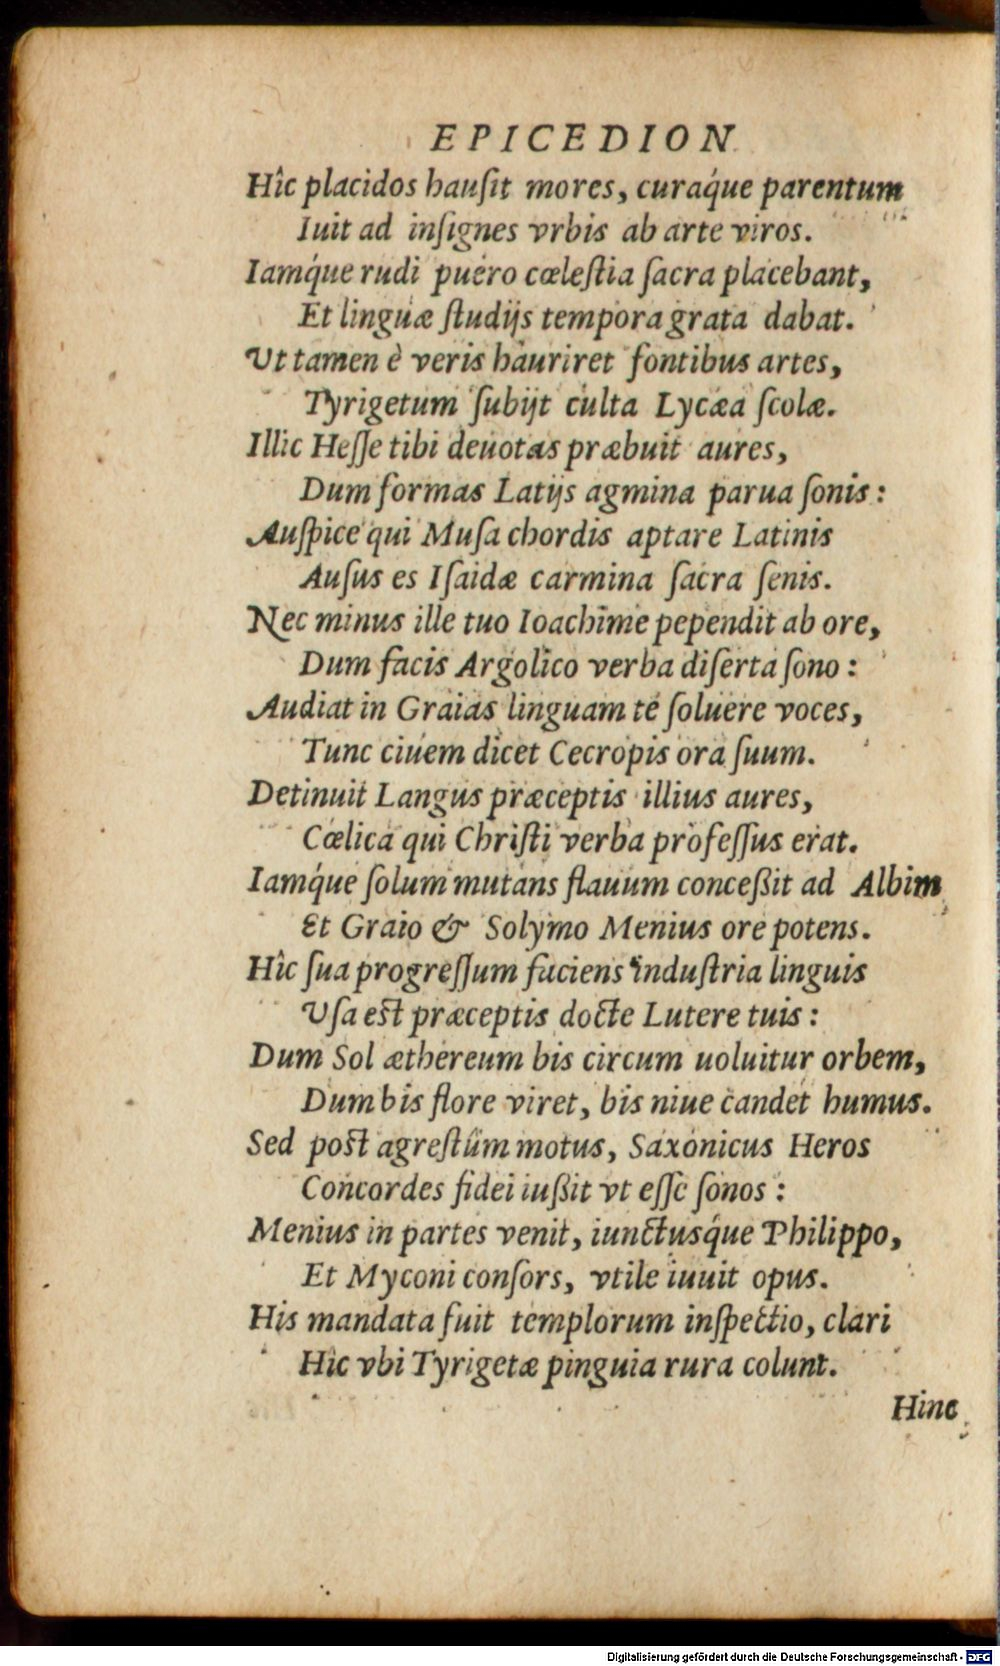 EPICEDION
Hîc placidos hauſit mores, curaq́ue parentum
Iuit ad inſignes vrbis ab arte viros.
Iamq́ue rudi puero cœleſtia ſacra placebant,
Et linguæ ſtudijs tempora grata dabat.
Ut tamen è veris hauriret fontibus artes,
Tyrigetum ſubijt culta Lycæa ſcolæ.
Illic Heſſe tibi deuotas præbuit aures,
Dum formas Latijs agmina parua ſonis:
Auſpice qui Muſa chordis aptare Latinis
Auſus es Iſaidæ carmina ſacra ſenis.
Nec minus ille tuo Ioachime pependit ab ore,
Dum facis Argolico verba diſerta ſono:
Audiat in Graias linguam te ſoluere voces,
Tunc ciuem dicet Cecropis ora ſuum.
Detinuit Langus præceptis illius aures,
Cœlica qui Chriſti verba profeſſus erat.
Iamq́ue ſolum mutans flauum conceßit ad Albim
Et Graio & Solymo Menius ore potens.
Hîc ſua progreſſum faciens induſtria linguis
Uſa eſt præceptis docte Lutere tuis:
Dum Sol æthereum bis circum uoluitur orbem,
Dum bis flore viret, bis niue candet humus.
Sed poſt agreſtûm motus, Saxonicus Heros
Concordes fidei iußit vt eſſe ſonos:
Menius in partes venit, iunctusq́ue Philippo,
Et Myconi conſors, vtile iuuit opus.
His mandata fuit templorum inſpectio, clari
Hic vbi Tyrigetæ pinguia rura colunt.
Hinc
Digitalisierung gefördert durch die Deutsche Forschungsgemeinschaft - DFG